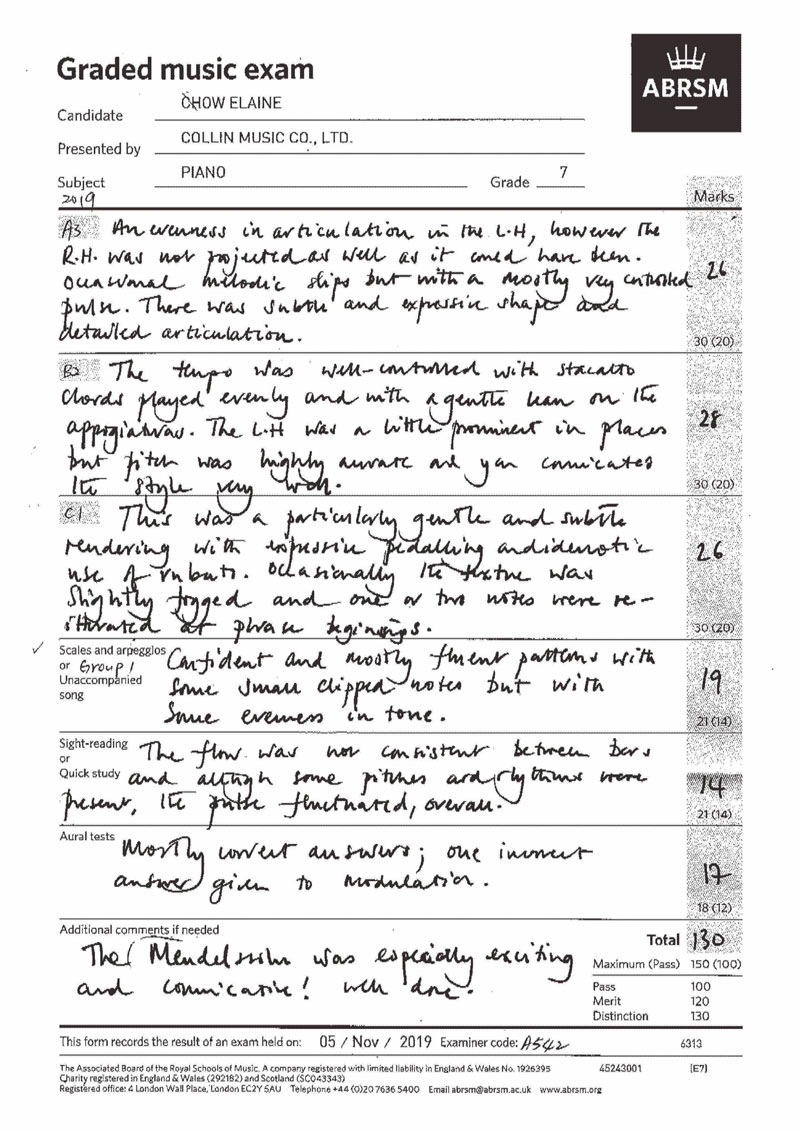 Graded music exam
ABRSM
Candidate CHOW ELAINE
Presented by COLLIN MUSIC CO., LTD.
Subject PIANO Grade 7
2019 Marks
A3 An evenness in articulation in the L.H, however the
R.H. was not projected as well as it could have been.
Occasional melodic slips but with a mostly very controlled 26
pulse. There was subtle and expressive shape and
detailed articulation. 30 (20)
B2 The tempo was well-controlled with staccato
chords played evenly and with a gentle lean on the
appogiaturas. The L.H was a little prominent in places 28
but pitch was highly accurate and you comunicated
the style very well. 30 (20)
C1 This was a particularly gentle and subtle
rendering with expressive pedalling and idiomatic
use of rubato. Occasionally the texture was 26
slightly fogged and one or two notes were re-
itterated at phrase beginnings. 30 (20)
Scales and arpeggios
or Group 1
Unaccompanied
song
Confident and mostly fluent patterns with
some small clipped notes but with 19
some evenness in tone. 21 (14)
Sight-reading
or
Quick study
The flow was not consistent between bars
and although some pitches and rhythms were 14
present, the pulse fluctuated, overall. 21 (14)
Aural tests
Mostly correct answers; one incorrect
answer given to modulation. 17
18 (12)
Additional comments if needed
The Mendelssohn was especially exciting
and comunicative! Well done.
Total 130
Maximum (Pass) 150 (100)
Pass 100
Merit 120
Distinction 130
This form records the result of an exam held on: 05 / Nov / 2019 Examiner code: A542 6313
The Associated Board of the Royal Schools of Music. A company registered with limited liability in England & Wales No. 1926395 45243001 [E7]
Charity registered in England & Wales (292182) and Scotland (SC043343)
Registered office: 4 London Wall Place, London EC2Y 5AU Telephone +44 (0)20 7636 5400 Email abrsm@abrsm.ac.uk www.abrsm.org